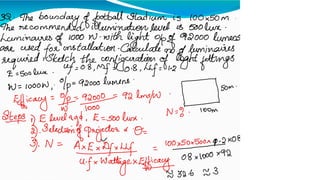 Q. The boundary of football Stadium is 100x50m.
The recommended illumination level is 500 lux.
Luminaires of 1000 W with light o/p of 92000 lumens
are used for installation. Calculate no of luminaires
required. Sketch the configuration of light fittings
E = 500 lux. uf = 0.8, Mf = 0.8, Llf = 1.2
W = 1000W, o/p = 92000 lumens.
50m.
Efficacy = o/p / W = 92000 / 1000 = 92 lm/W.
100m
N = ?
Steps 1) E level reqd, E = 500 lux.
2) Selection of projector & θ =
3) N = A x E x Df x Llf / u.f x Wattage x Efficacy = 100x50x500x 1.2x0.8 / 0.8x1000x92
≈ 32.6 ≈ 3